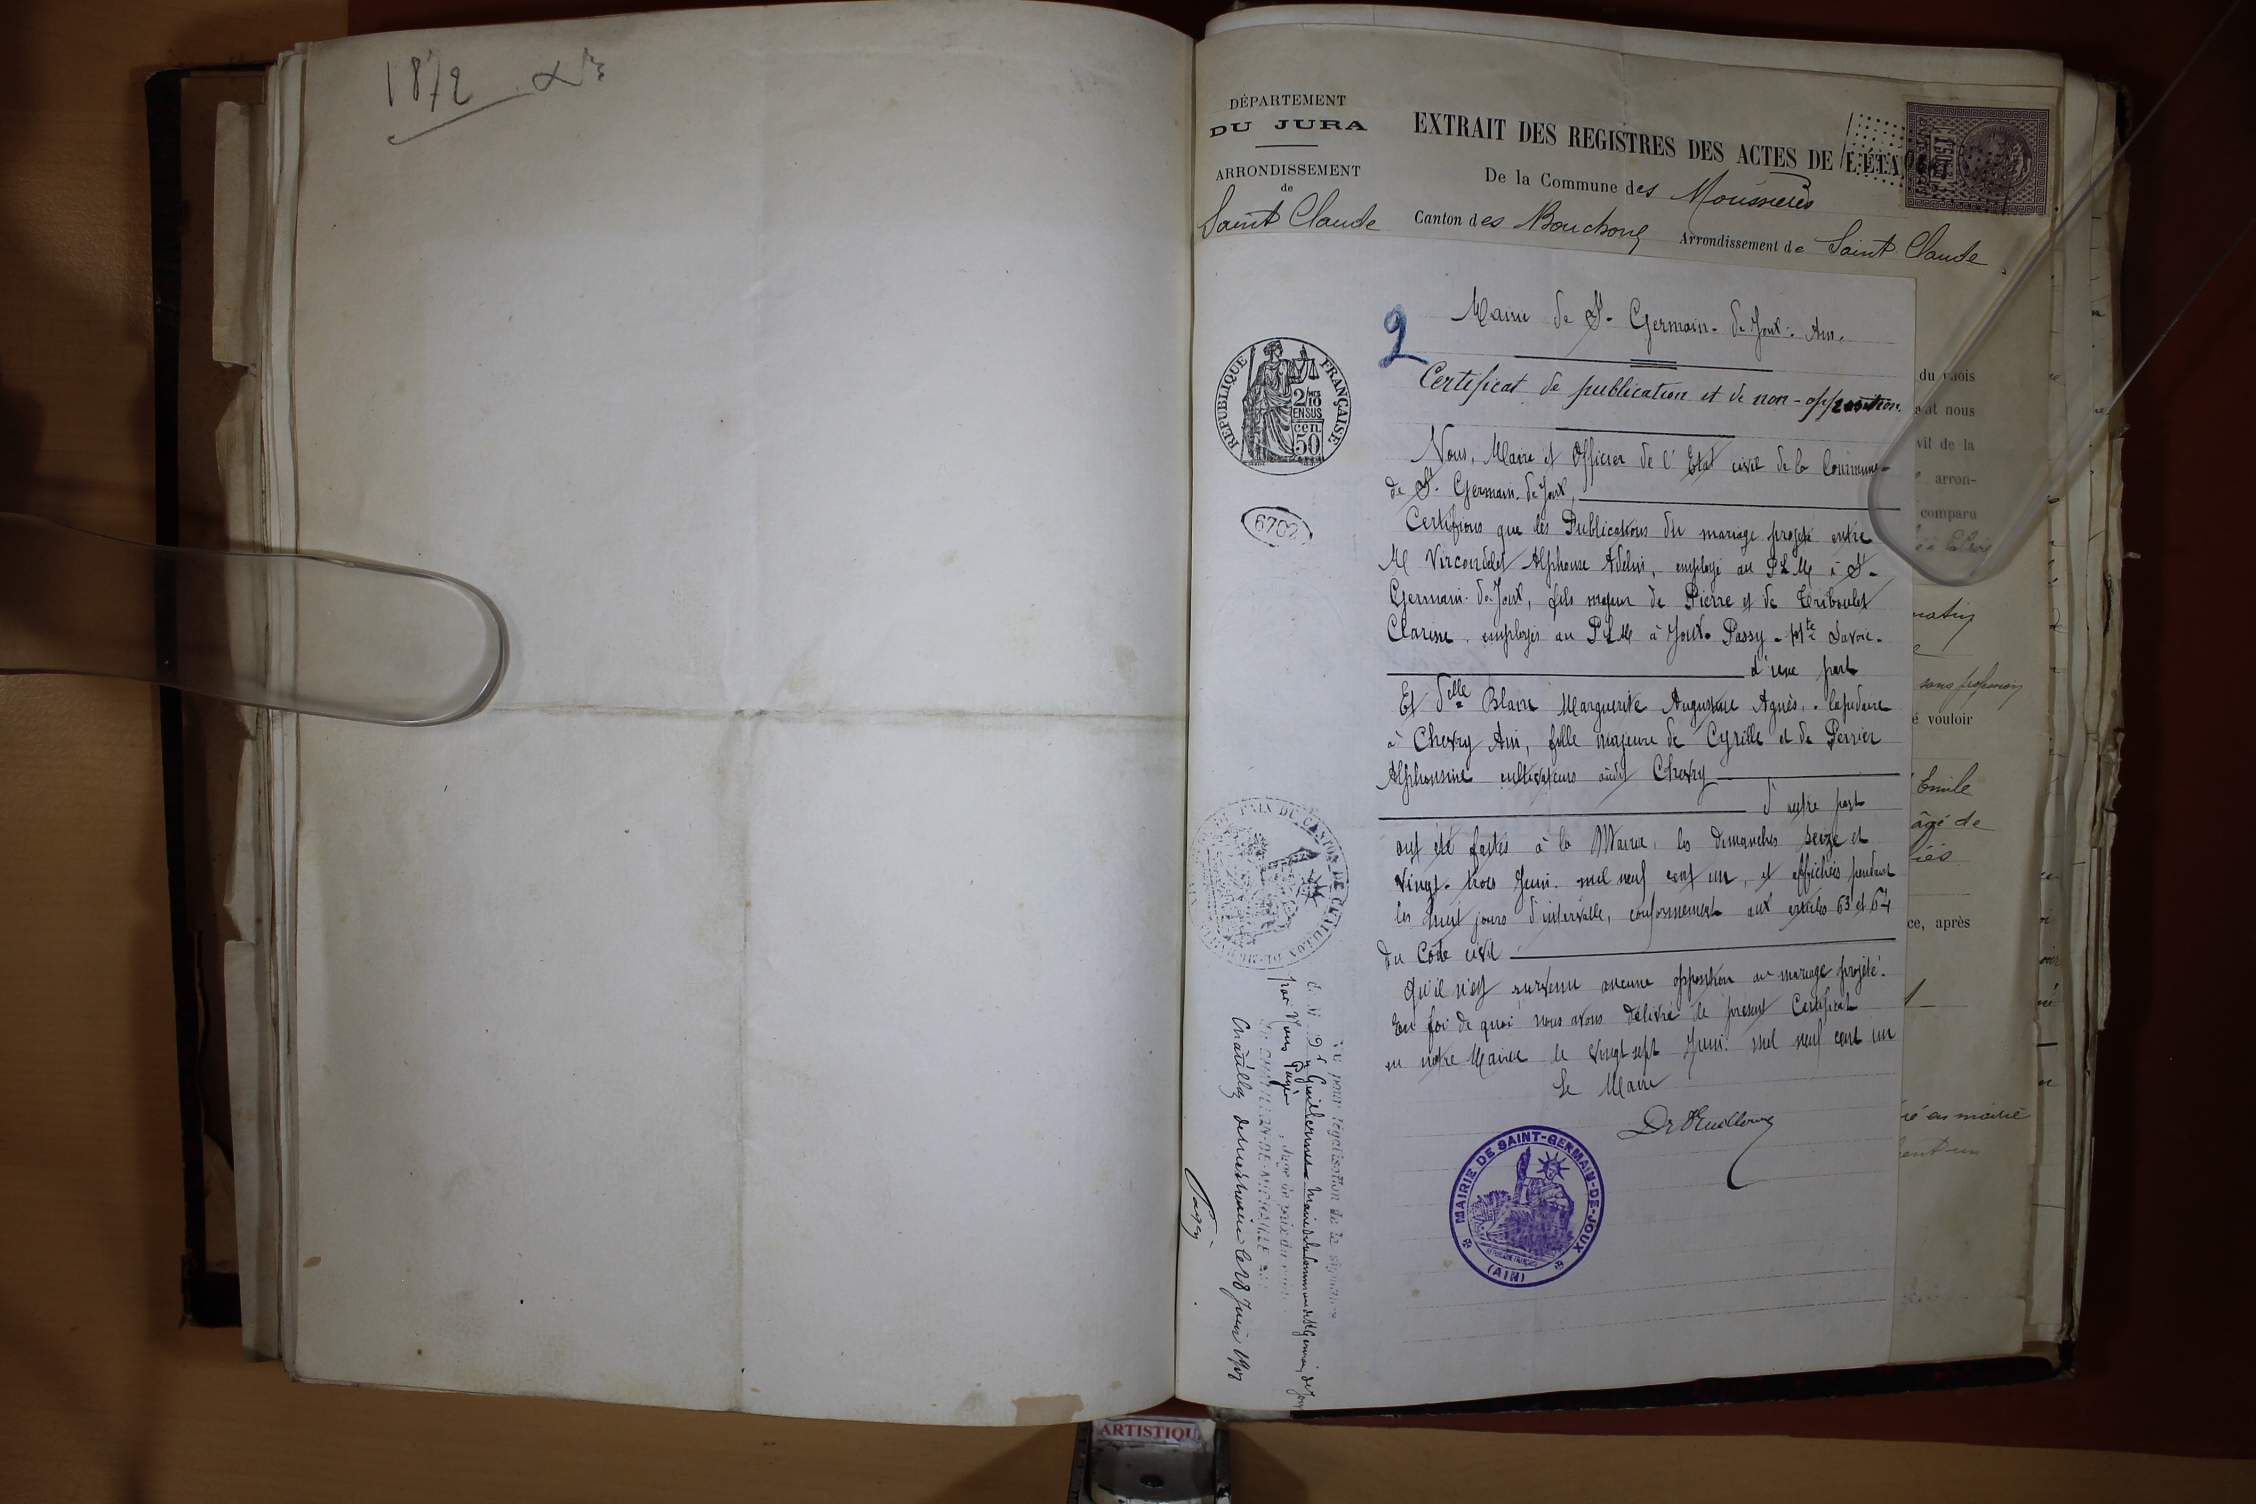 1872
DÉPARTEMENT
DU JURA
ARRONDISSEMENT
de
Saint Claude
EXTRAIT DES REGISTRES DES ACTES DE L'ÉTA
De la Commune des Moussières
Canton des Bouchoux Arrondissement de Saint Claude
2
Mairie de St. Germain-de-Joux. Ain.
Certificat de publication et de non-opposition
RÉPUBLIQUE FRANÇAISE
2/10
EN SUS
cen.
50
6702
Nous, Maire et Officier de l'Etat civil de la Commune
de St. Germain-de-Joux,
Certifions que les Publications du mariage projeté entre
M Vircondelet Alphonse Adelin, employé au PLM à St-
Germain-de-Joux, fils majeur de Pierre et de Triboulet
Clarisse employés au PLM à Passy - Hte Savoie.
d'une part
Et Delle Blanc Marguerite Augustine Agnès, lapidaire
à Chevry Ain, fille majeure de Cyrille et de Perrier
Alphonsine cultivateurs audit Chevry
d'autre part
ont été faites à la Mairie, les dimanches seize et
vingt-trois Juin mil neuf cent un, et affichées pendant
les huit jours d'intervalle, conformément aux articles 63 et 64
du Code civil
Qu'il n'est survenu aucune opposition au mariage projeté.
En foi de quoi nous avons délivré le présent Certificat
en notre Mairie le vingt sept Juin mil neuf cent un
Le Maire
MAIRIE DE SAINT-GERMAIN-DE-JOUX
(AIN)
Vu pour légalisation de la signature
Maire de la Commune de St Germain de Joux
par Nous
Châtillon de Michaille le 28 Juin 1901
du mois
nous
vil de la
arron-
comparu
matin
sans profession
é vouloir
Emile
âgé de
ce, après
en mairie
cent un
ARTISTIQU